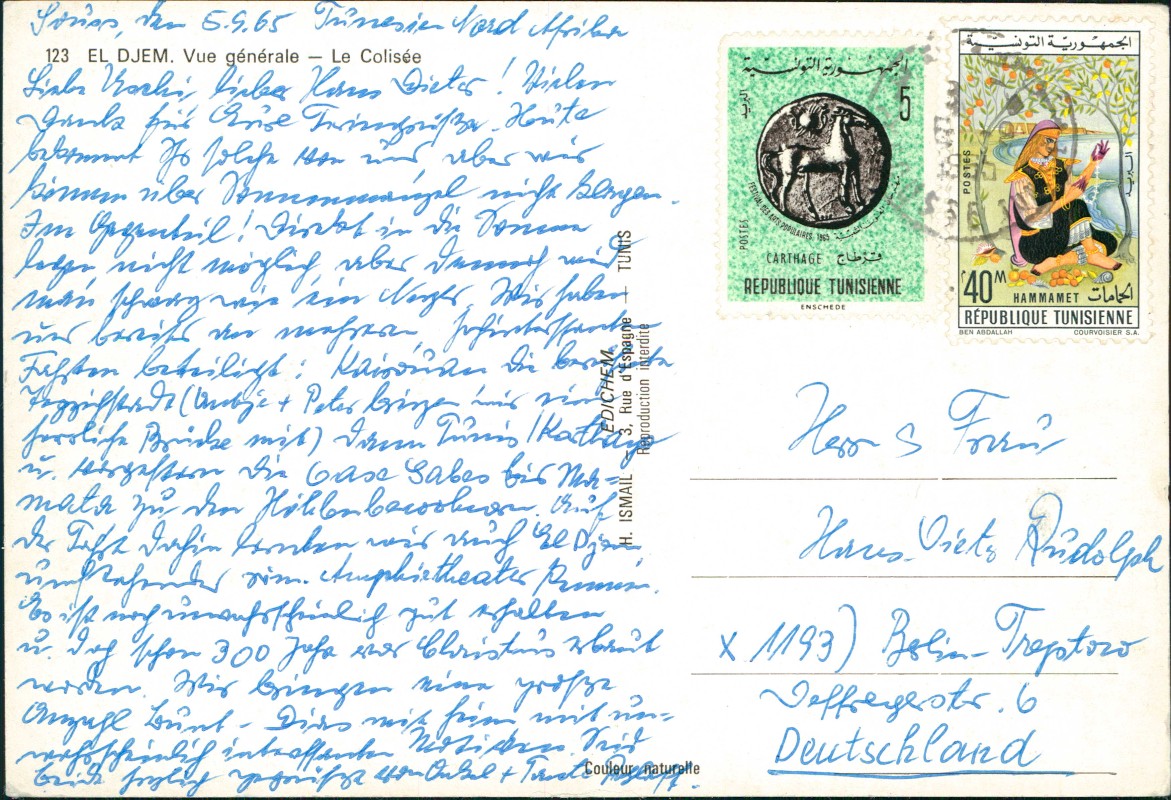 Souss, den 5.9.65 Tunesien Nord Afrika
123 EL DJEM. Vue générale – Le Colisée
Liebe lieber Hans Dieter! Vielen
Dank für Eure Heute
bekommt Ihr solche von uns aber wir
können über Sonnenmangel nicht klagen.
Im Gegenteil! Direkt in die Sonne
legen nicht möglich, aber dennoch wird
man schwarz wie ein Neger. Wir haben
uns bereits an mehreren
Fahrten beteiligt: Kairouan die berühmte
Teppichstadt (Antje + Peter bringen wir eine
herrliche Brücke mit) dann Tunis/Karthago
u. vorgestern die Oase Gabes bis Ma-
mata zu den Höhlenbewohnern. Auf
der Fahrt dahin wir auch El Djem
röm. Amphietheater
Es ist noch unwahrscheinlich gut erhalten
u. doch schon 300 Jahre vor Christus erbaut
worden. Wir bringen eine große
Anzahl Bunt-Dias mit heim mit un-
wahrscheinlich interessanten Motiven. Seid
beide herzlich gegrüßt von Onkel + Tante
H. ISMAIL – EDICHEM – TUNIS
3, Rue d'Espagne
Reproduction interdite
Couleur naturelle
الجمهورية التونسية
البريد
5
FESTIVAL DES ARTS POPULAIRES, 1965
POSTES
CARTHAGE قرطاج
RÉPUBLIQUE TUNISIENNE
ENSCHEDE
الجمهورية التونسية
POSTES
البريد
40M
HAMMAMET الحمامات
RÉPUBLIQUE TUNISIENNE
BEN ABDALLAH COURVOISIER S.A.
Herr & Frau
Hans-Dieter Rudolph
X 1193) Berlin-Treptow
6
Deutschland